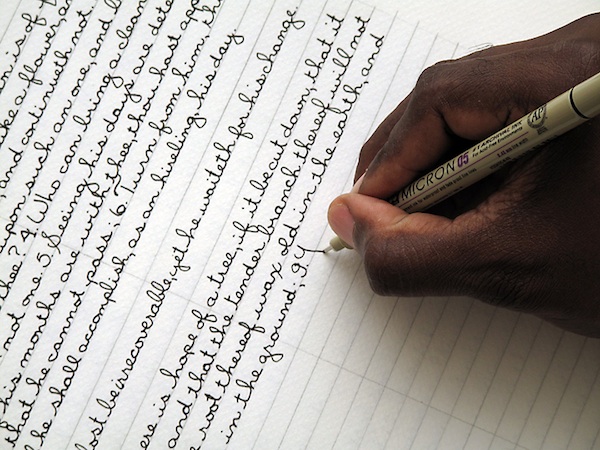 n is of
ke a flower, an
and continueth not
upon such an one, and
thee? 4. Who can bring a clean
not one. 5. Seeing his days are dete
his months are with thee, thou hast app
that he cannot pass: 6. Turn from him, th
he shall accomplish, as an hireling his day
lost be irrecoverable, yet he waiteth for his change
ere is hope of a tree, if it be cut down, that it
and that the tender branch thereof will not
root thereof wax old in the earth, and
in the ground; 9. Y
MICRON 05 ARCHIVAL INK
AP